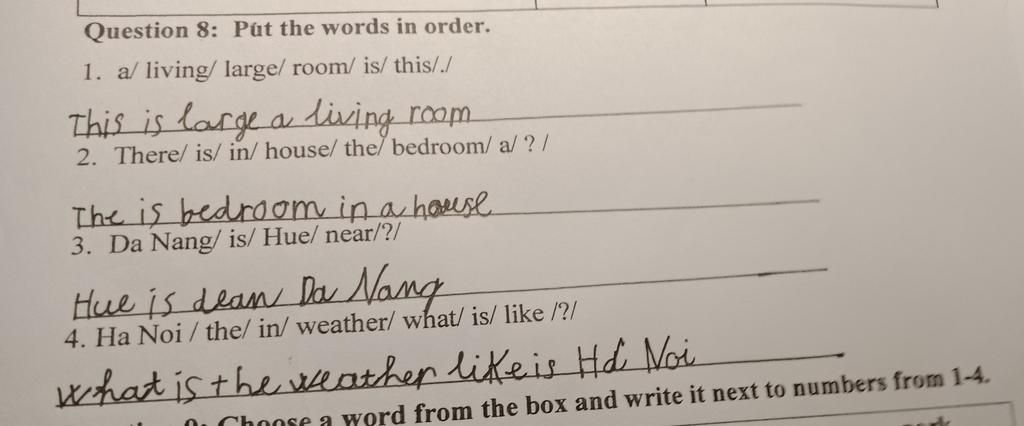 Question 8: Put the words in order.
1. a/ living/ large/ room/ is/ this/./
This is large a living room
2. There/ is/ in/ house/ the/ bedroom/ a/ ? /
The is bedroom in a house
3. Da Nang/ is/ Hue/ near/?/
Hue is dean Da Nang
4. Ha Noi / the/ in/ weather/ what/ is/ like /?/
what is the weather like is Hd Noi
9: Choose a word from the box and write it next to numbers from 1-4.